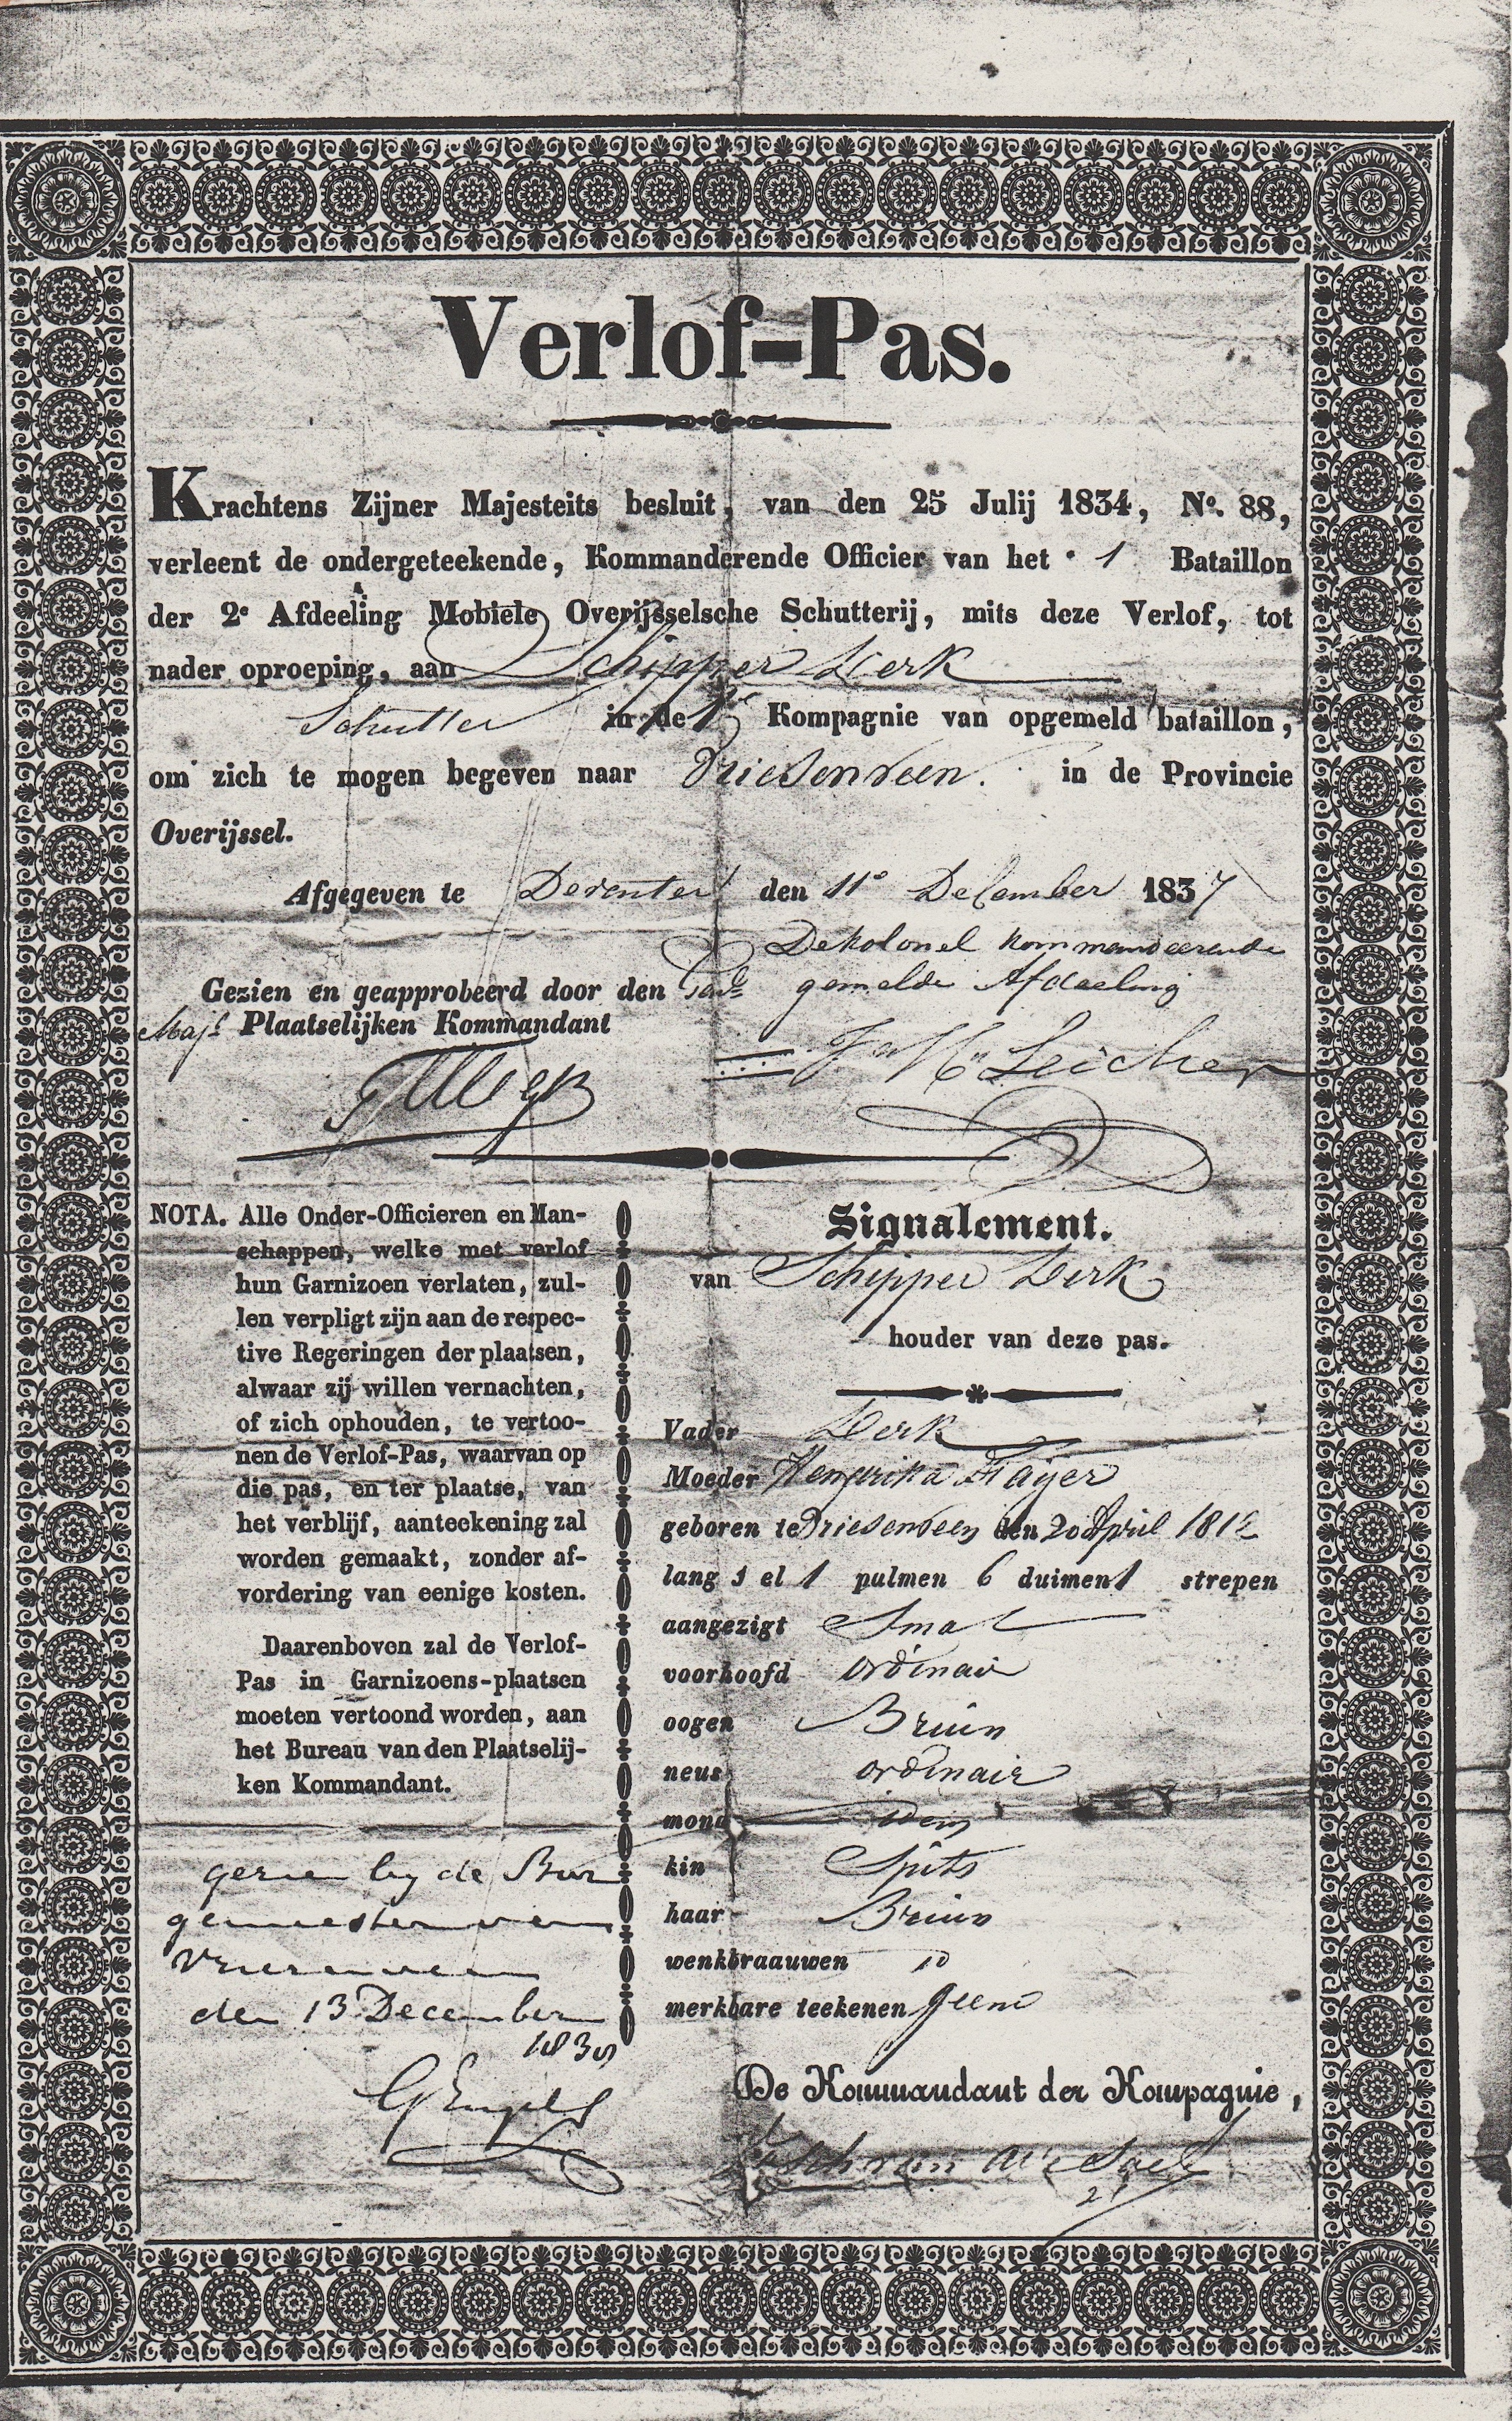 Verlof-Pas.
Krachtens Zijner Majesteits besluit, van den 25 Julij 1834, No. 88,
verleent de ondergeteekende, Kommanderende Officier van het 1 Bataillon
der 2e Afdeeling Mobiele Overijsselsche Schutterij, mits deze Verlof, tot
nader oproeping, aan Schipper Derk
Schutter in de 1e Kompagnie van opgemeld bataillon,
om zich te mogen begeven naar Vriesenveen. in de Provincie
Overijssel.
Afgegeven te Deventer den 11e December 1837
De kolonel kommandeerende
gemelde Afdeeling
Gezien en geapprobeerd door den
Majr Plaatselijken Kommandant
NOTA. Alle Onder-Officieren en Man-
schappen, welke met verlof
hun Garnizoen verlaten, zul-
len verpligt zijn aan de respec-
tive Regeringen der plaatsen,
alwaar zij willen vernachten,
of zich ophouden, te vertoo-
nen de Verlof-Pas, waarvan op
die pas, en ter plaatse, van
het verblijf, aanteekening zal
worden gemaakt, zonder af-
vordering van eenige kosten.
Daarenboven zal de Verlof-
Pas in Garnizoens-plaatsen
moeten vertoond worden, aan
het Bureau van den Plaatselij-
ken Kommandant.
gezien by de Bur
gemeester van
Vriesenveen
den 13 December
Signalement.
van Schipper Derk
houder van deze pas.
Vader Derk
Moeder Hendrika
geboren te Vriesenveen den 20 April 1812
lang 1 el 1 pulmen 6 duimen 1 strepen
aangezigt Smal
voorhoofd ordinair
oogen Bruin
neus ordinair
mond idem
kin Spits
haar Bruin
wenkbraauwen id
merkbare teekenen geene
De Kommandant der Kompagnie,